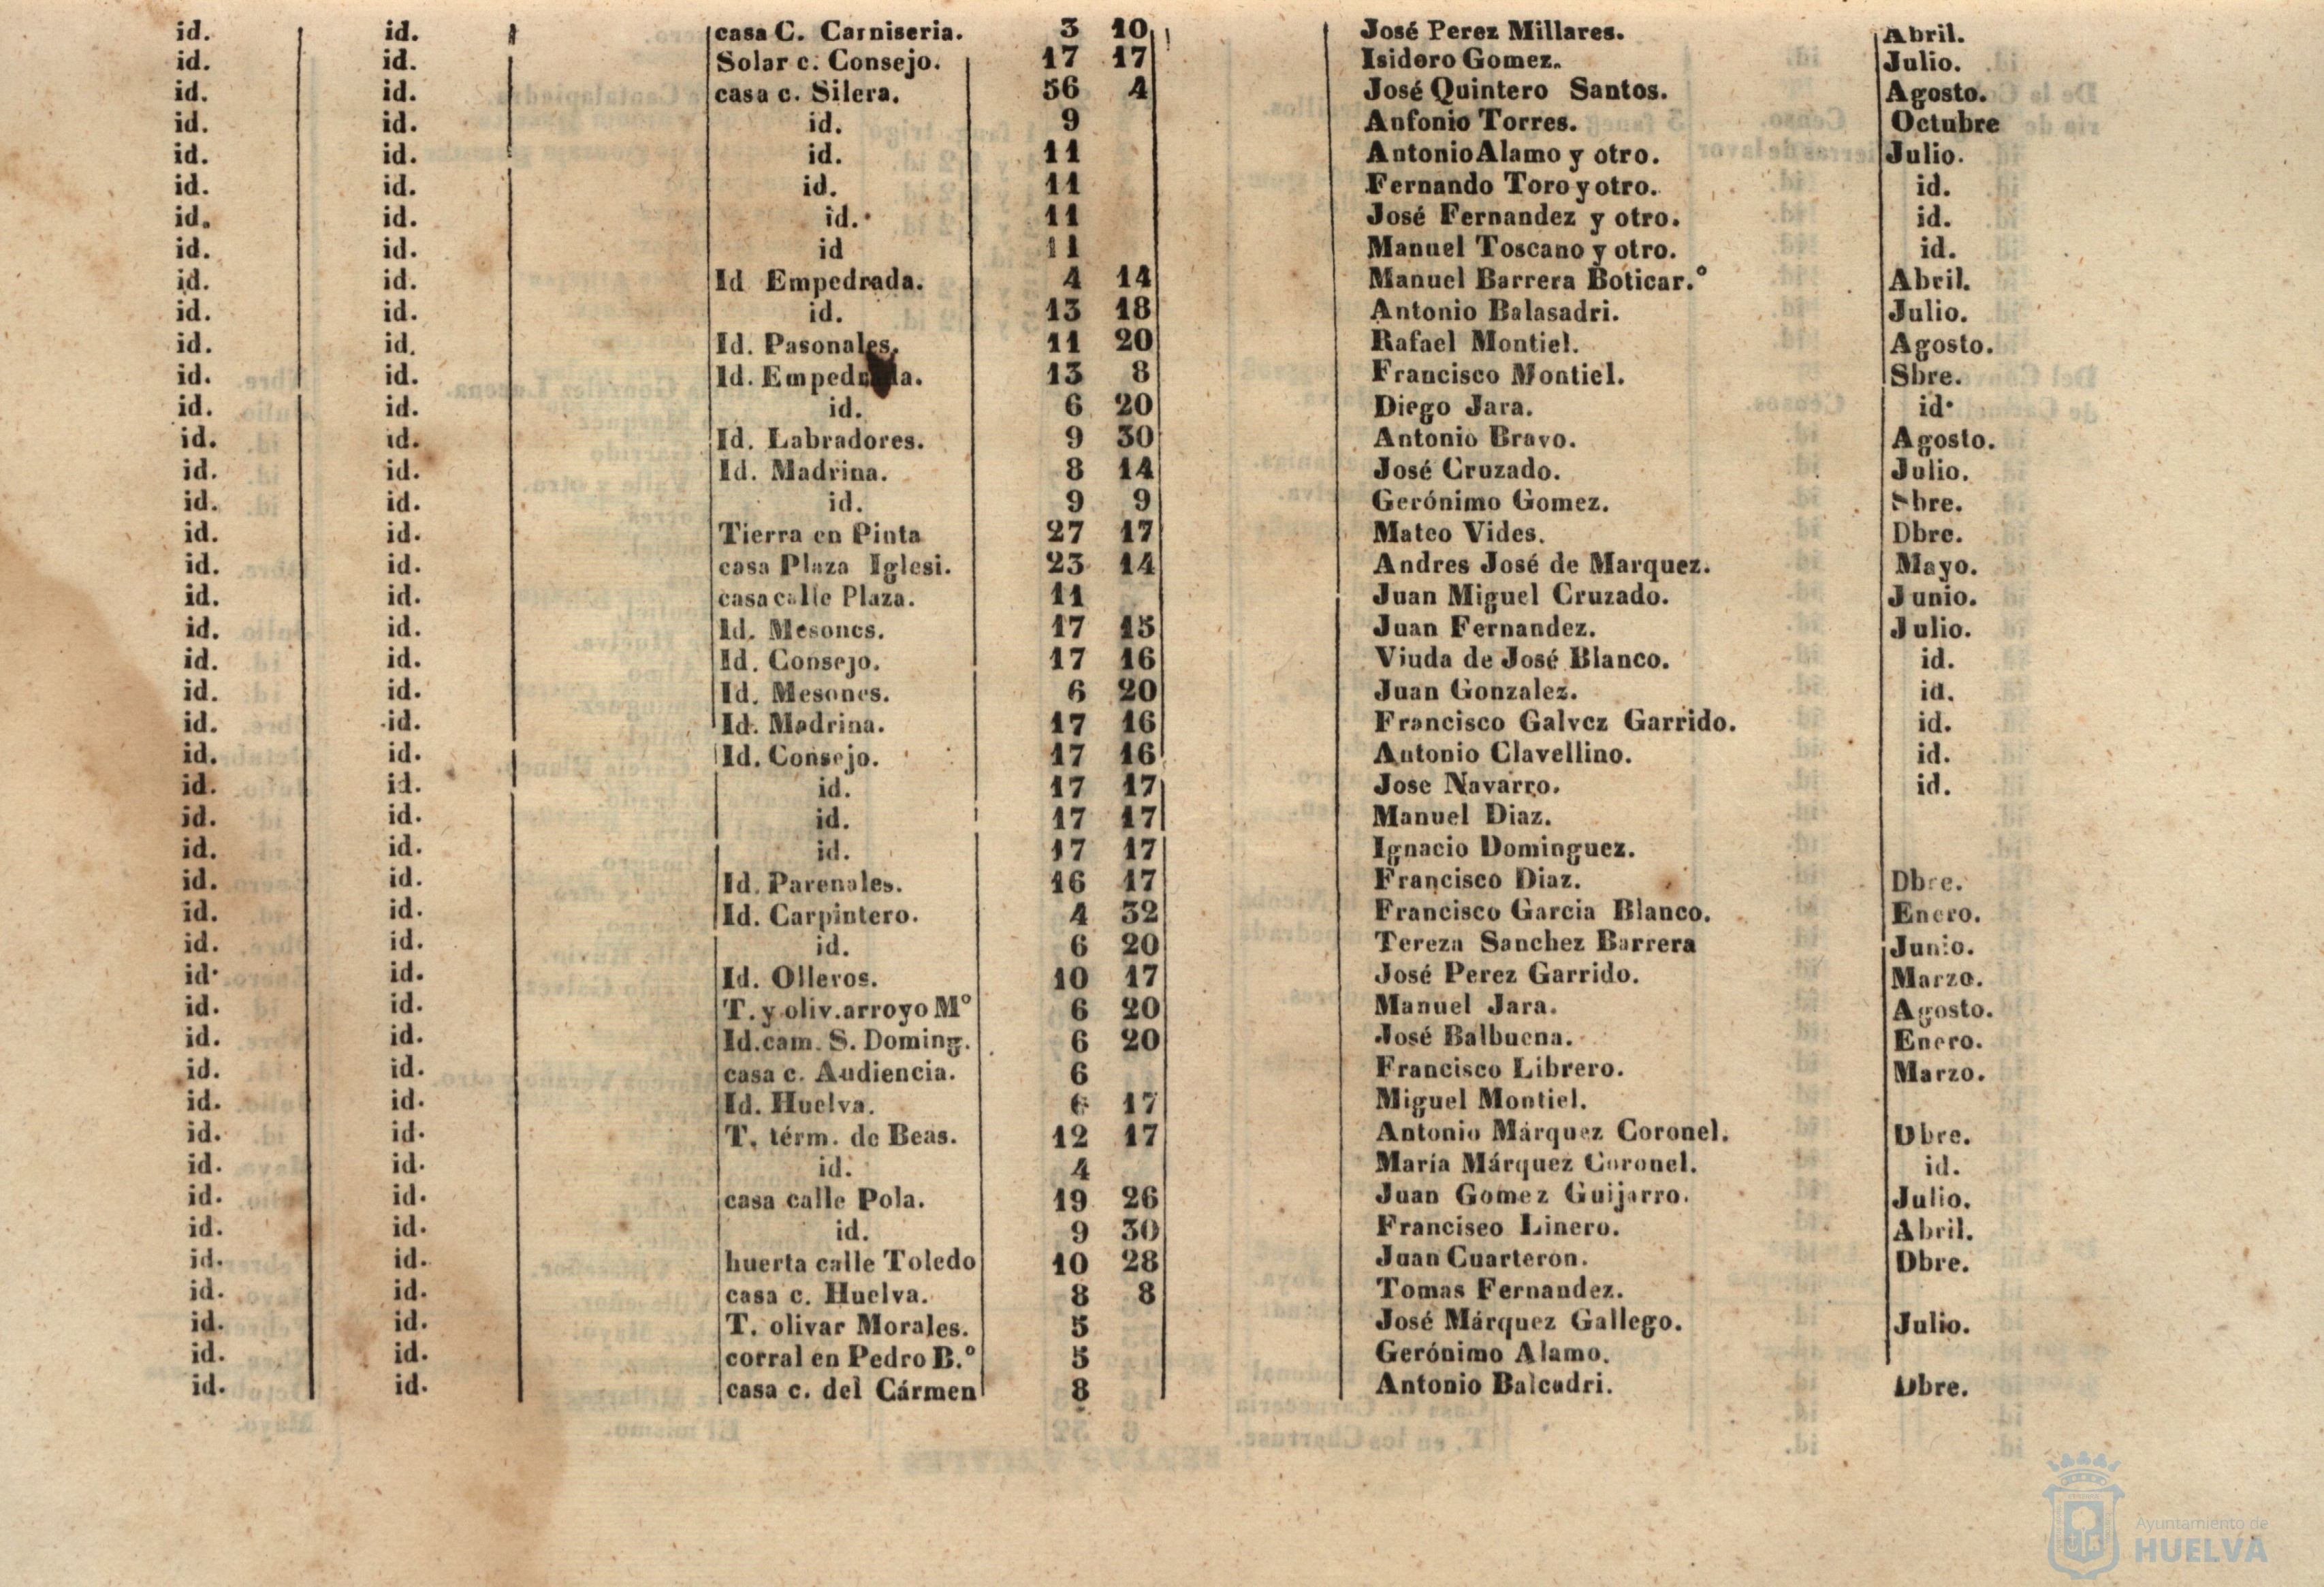 id. id. casa C. Carniseria. 3 10 José Perez Millares. Abril.
id. id. Solar c. Consejo. 17 17 Isidoro Gomez. Julio.
id. id. casa c. Silera. 56 4 José Quintero Santos. Agosto.
id. id. id. 9 Anfonio Torres. Octubre
id. id. id. 11 Antonio Alamo y otro. Julio.
id. id. id. 11 Fernando Toro y otro. id.
id. id. id. 11 José Fernandez y otro. id.
id. id. id 11 Manuel Toscano y otro. id.
id. id. Id Empedrada. 4 14 Manuel Barrera Boticar.º Abril.
id. id. id. 13 18 Antonio Balasadri. Julio.
id. id. Id. Pasonales. 11 20 Rafael Montiel. Agosto.
id. id. Id. Empedrada. 13 8 Francisco Montiel. Sbre.
id. id. id. 6 20 Diego Jara. id.
id. id. Id. Labradores. 9 30 Antonio Bravo. Agosto.
id. id. Id. Madrina. 8 14 José Cruzado. Julio.
id. id. id. 9 9 Gerónimo Gomez. Sbre.
id. id. Tierra en Pinta 27 17 Mateo Vides. Dbre.
id. id. casa Plaza Iglesi. 23 14 Andres José de Marquez. Mayo.
id. id. casa calle Plaza. 11 Juan Miguel Cruzado. Junio.
id. id. Id. Mesones. 17 15 Juan Fernandez. Julio.
id. id. Id. Consejo. 17 16 Viuda de José Blanco. id.
id. id. Id. Mesones. 6 20 Juan Gonzalez. id.
id. id. Id. Madrina. 17 16 Francisco Galvez Garrido. id.
id. id. Id. Consejo. 17 16 Antonio Clavellino. id.
id. id. id. 17 17 Jose Navarro. id.
id. id. id. 17 17 Manuel Diaz.
id. id. id. 17 17 Ignacio Dominguez.
id. id. Id. Parenales. 16 17 Francisco Diaz. Dbre.
id. id. Id. Carpintero. 4 32 Francisco Garcia Blanco. Enero.
id. id. id. 6 20 Tereza Sanchez Barrera Junio.
id. id. Id. Olleros. 10 17 José Perez Garrido. Marzo.
id. id. T. y oliv. arroyo Mº 6 20 Manuel Jara. Agosto.
id. id. Id. cam. S. Doming. 6 20 José Balbuena. Enero.
id. id. casa c. Audiencia. 6 Francisco Librero. Marzo.
id. id. Id. Huelva. 6 17 Miguel Montiel.
id. id. T. térm. de Beas. 12 17 Antonio Márquez Coronel. Dbre.
id. id. id. 4 María Márquez Coronel. id.
id. id. casa calle Pola. 19 26 Juan Gomez Guijarro. Julio.
id. id. id. 9 30 Franciseo Linero. Abril.
id. id. huerta calle Toledo 10 28 Juan Cuarteron. Dbre.
id. id. casa c. Huelva. 8 8 Tomas Fernandez.
id. id. T. olivar Morales. 5 José Márquez Gallego. Julio.
id. id. corral en Pedro B.º 5 Gerónimo Alamo.
id. id. casa c. del Cármen 8 Antonio Balcadri. Dbre.
Ayuntamiento de
HUELVA